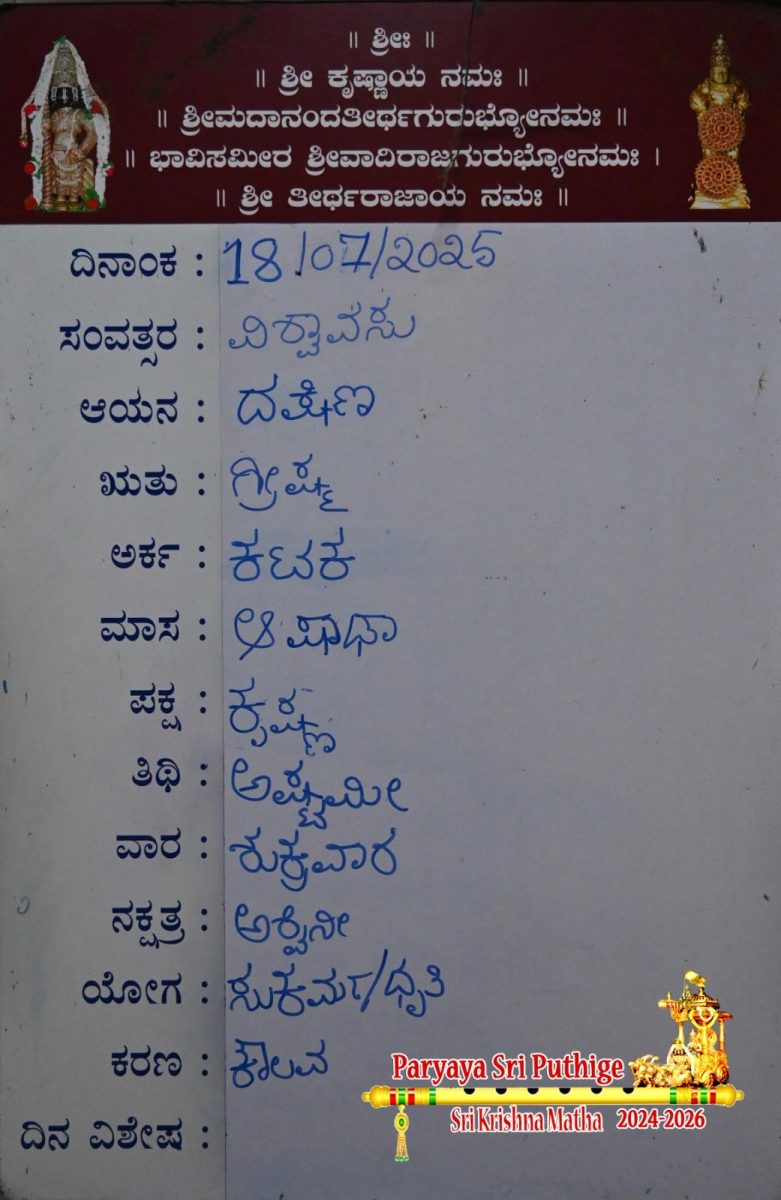 ॥ ಶ್ರೀಃ ॥
॥ ಶ್ರೀ ಕೃಷ್ಣಾಯ ನಮಃ ॥
॥ ಶ್ರೀಮದಾನಂದತೀರ್ಥಗುರುಭ್ಯೋನಮಃ ॥
॥ ಭಾವಿಸಮೀರ ಶ್ರೀವಾದಿರಾಜಗುರುಭ್ಯೋನಮಃ ।
॥ ಶ್ರೀ ತೀರ್ಥರಾಜಾಯ ನಮಃ ॥
ದಿನಾಂಕ : 18/07/2025
ಸಂವತ್ಸರ : ವಿಶ್ವಾವಸು
ಆಯನ : ದಕ್ಷಿಣ
ಋತು : ಗ್ರೀಷ್ಮ
ಅರ್ಕ : ಕಟಕ
ಮಾಸ : ಆಷಾಢಾ
ಪಕ್ಷ : ಕೃಷ್ಣ
ತಿಥಿ : ಅಷ್ಟಮೀ
ವಾರ : ಶುಕ್ರವಾರ
ನಕ್ಷತ್ರ : ಅಶ್ವಿನೀ
ಯೋಗ : ಸುಕರ್ಮ/ಧೃತಿ
ಕರಣ : ಕೌಲವ
ದಿನ ವಿಶೇಷ :
Paryaya Sri Puthige
Sri Krishna Matha 2024-2026